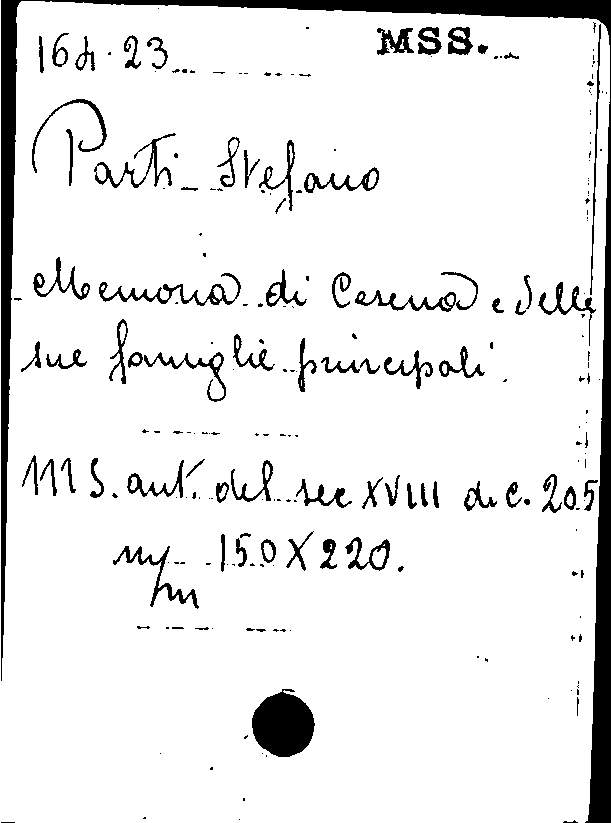 164.23 MSS.
Parti Stefano
Memoria di Cesena e delle
sue famiglie principali.
MS. aut. del sec XVIII di c. 205
150 X 220.